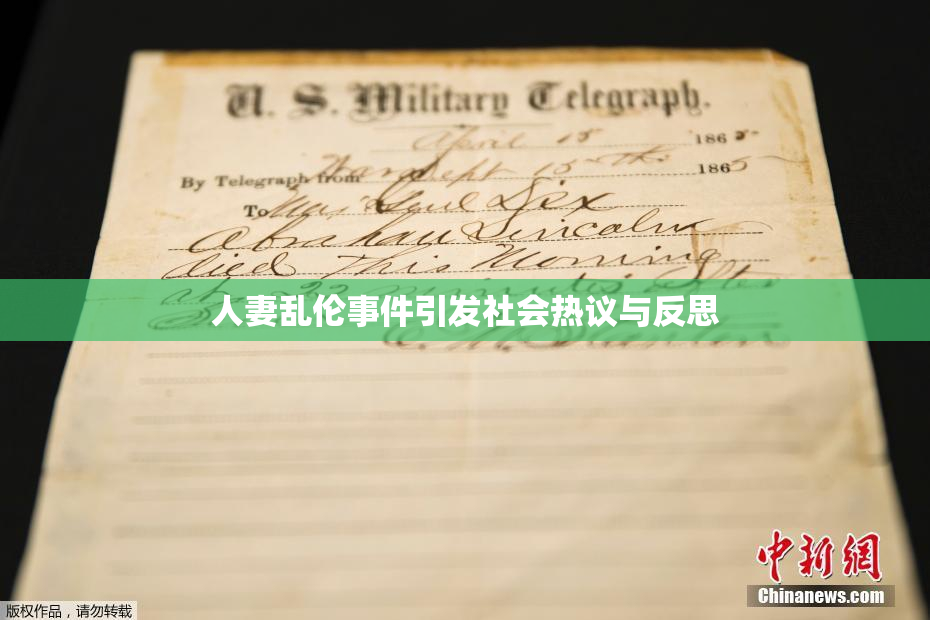 U. S. Military Telegraph.
April 15 1865
By Telegraph from War Dept 15th 1865
To Maj Genl Dix
Abraham Lincoln
died This Morning
at 22 minutes after
人妻乱伦事件引发社会热议与反思
中新网
Chinanews.com
版权作品，请勿转载